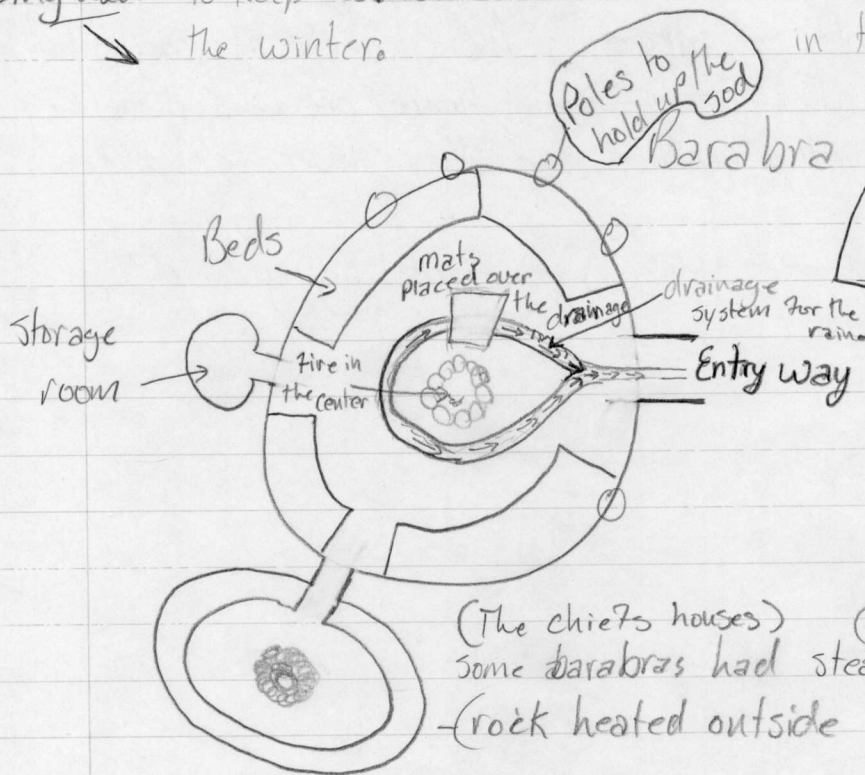 to help
the winter.
in t
Poles to
hold up the
sod
Barabra
Beds
mats
placed over
the drainage
drainage
system for the
Storage
room
fire in
the center
Entry way
(The chiefs houses)
some barabras had stea
(rock heated outside